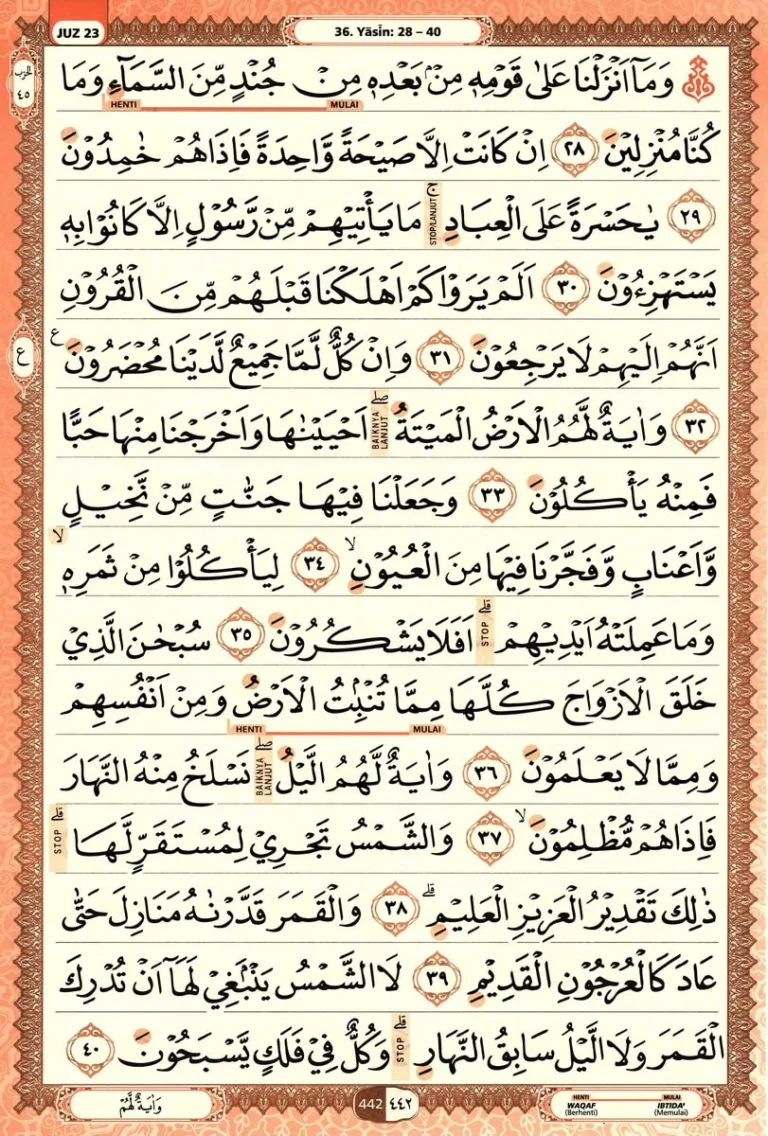 JUZ 23
36. Yāsīn: 28 – 40
الحزب
٤٥
وَمَآ اَنْزَلْنَا عَلٰى قَوْمِهٖ مِنْۢ بَعْدِهٖ مِنْ جُنْدٍ مِّنَ السَّمَاۤءِ وَمَا
HENTI MULAI
كُنَّا مُنْزِلِيْنَ ٢٨ اِنْ كَانَتْ اِلَّا صَيْحَةً وَّاحِدَةً فَاِذَا هُمْ خٰمِدُوْنَ
٢٩ يٰحَسْرَةً عَلَى الْعِبَادِۚ STOP/LANJUT مَا يَأْتِيْهِمْ مِّنْ رَّسُوْلٍ اِلَّا كَانُوْا بِهٖ
يَسْتَهْزِءُوْنَ ٣٠ اَلَمْ يَرَوْا كَمْ اَهْلَكْنَا قَبْلَهُمْ مِّنَ الْقُرُوْنِ
اَنَّهُمْ اِلَيْهِمْ لَا يَرْجِعُوْنَ ٣١ وَاِنْ كُلٌّ لَّمَّا جَمِيْعٌ لَّدَيْنَا مُحْضَرُوْنَ ع
ع
٣٢ وَاٰيَةٌ لَّهُمُ الْاَرْضُ الْمَيْتَةُۖ BAIKNYA LANJUT اَحْيَيْنٰهَا وَاَخْرَجْنَا مِنْهَا حَبًّا
فَمِنْهُ يَأْكُلُوْنَ ٣٣ وَجَعَلْنَا فِيْهَا جَنّٰتٍ مِّنْ نَّخِيْلٍ
وَّاَعْنَابٍ وَّفَجَّرْنَا فِيْهَا مِنَ الْعُيُوْنِۙ ٣٤ لِيَأْكُلُوْا مِنْ ثَمَرِهٖۙ
وَمَا عَمِلَتْهُ اَيْدِيْهِمْۗ STOP اَفَلَا يَشْكُرُوْنَ ٣٥ سُبْحٰنَ الَّذِيْ
خَلَقَ الْاَزْوَاجَ كُلَّهَا مِمَّا تُنْۢبِتُ الْاَرْضُ وَمِنْ اَنْفُسِهِمْ
HENTI MULAI
وَمِمَّا لَا يَعْلَمُوْنَ ٣٦ وَاٰيَةٌ لَّهُمُ الَّيْلُۖ BAIKNYA LANJUT نَسْلَخُ مِنْهُ النَّهَارَ
فَاِذَا هُمْ مُّظْلِمُوْنَۙ ٣٧ وَالشَّمْسُ تَجْرِيْ لِمُسْتَقَرٍّ لَّهَاۗ STOP
ذٰلِكَ تَقْدِيْرُ الْعَزِيْزِ الْعَلِيْمِۗ ٣٨ وَالْقَمَرَ قَدَّرْنٰهُ مَنَازِلَ حَتّٰى
عَادَ كَالْعُرْجُوْنِ الْقَدِيْمِ ٣٩ لَا الشَّمْسُ يَنْۢبَغِيْ لَهَآ اَنْ تُدْرِكَ
الْقَمَرَ وَلَا الَّيْلُ سَابِقُ النَّهَارِۗ STOP وَكُلٌّ فِيْ فَلَكٍ يَّسْبَحُوْنَ ٤٠
وَاٰيَةٌ لَّهُمْ
442 ٤٤٢
HENTI MULAI
WAQAF IBTIDA'
(Berhenti) (Memulai)